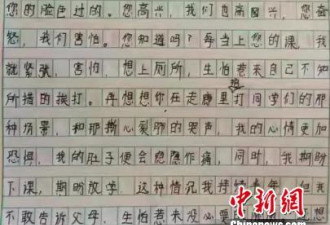 您的脸色过的。您高兴，我们也高兴，您
怒，我们害怕。您知道吗？每当上您的课，我
就紧张，害怕，想上厕所，生怕惹来自己不知
所措的挨打。再想想你在走廊里打同学们的那
种场景，和那撕心裂肺的哭声，我的心情更加
恐惧，我的肚子便会隐隐作痛，同时，我期盼
下课，期盼放学，这种情况我持续
不敢告诉父母，生怕惹来没必要的
中新网